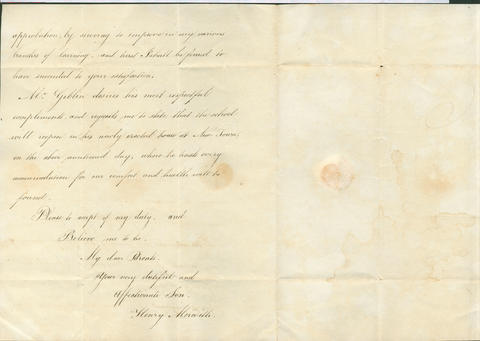 approbation, by striving to improve in my various
branches of learning, and trust I shall be found to
have succeeded to your satisfaction.
Mr. Giblin desires his most respectful
compliments and requests me to state that the school
will reopen in his newly erected house at New Town,
on the above mentioned day, where he trusts every
accommodation for our comfort and health will be
found.
Please to accept of my duty, and
Believe me to be,
My dear Parents
Your very dutiful and
Affectionate Son
Henry